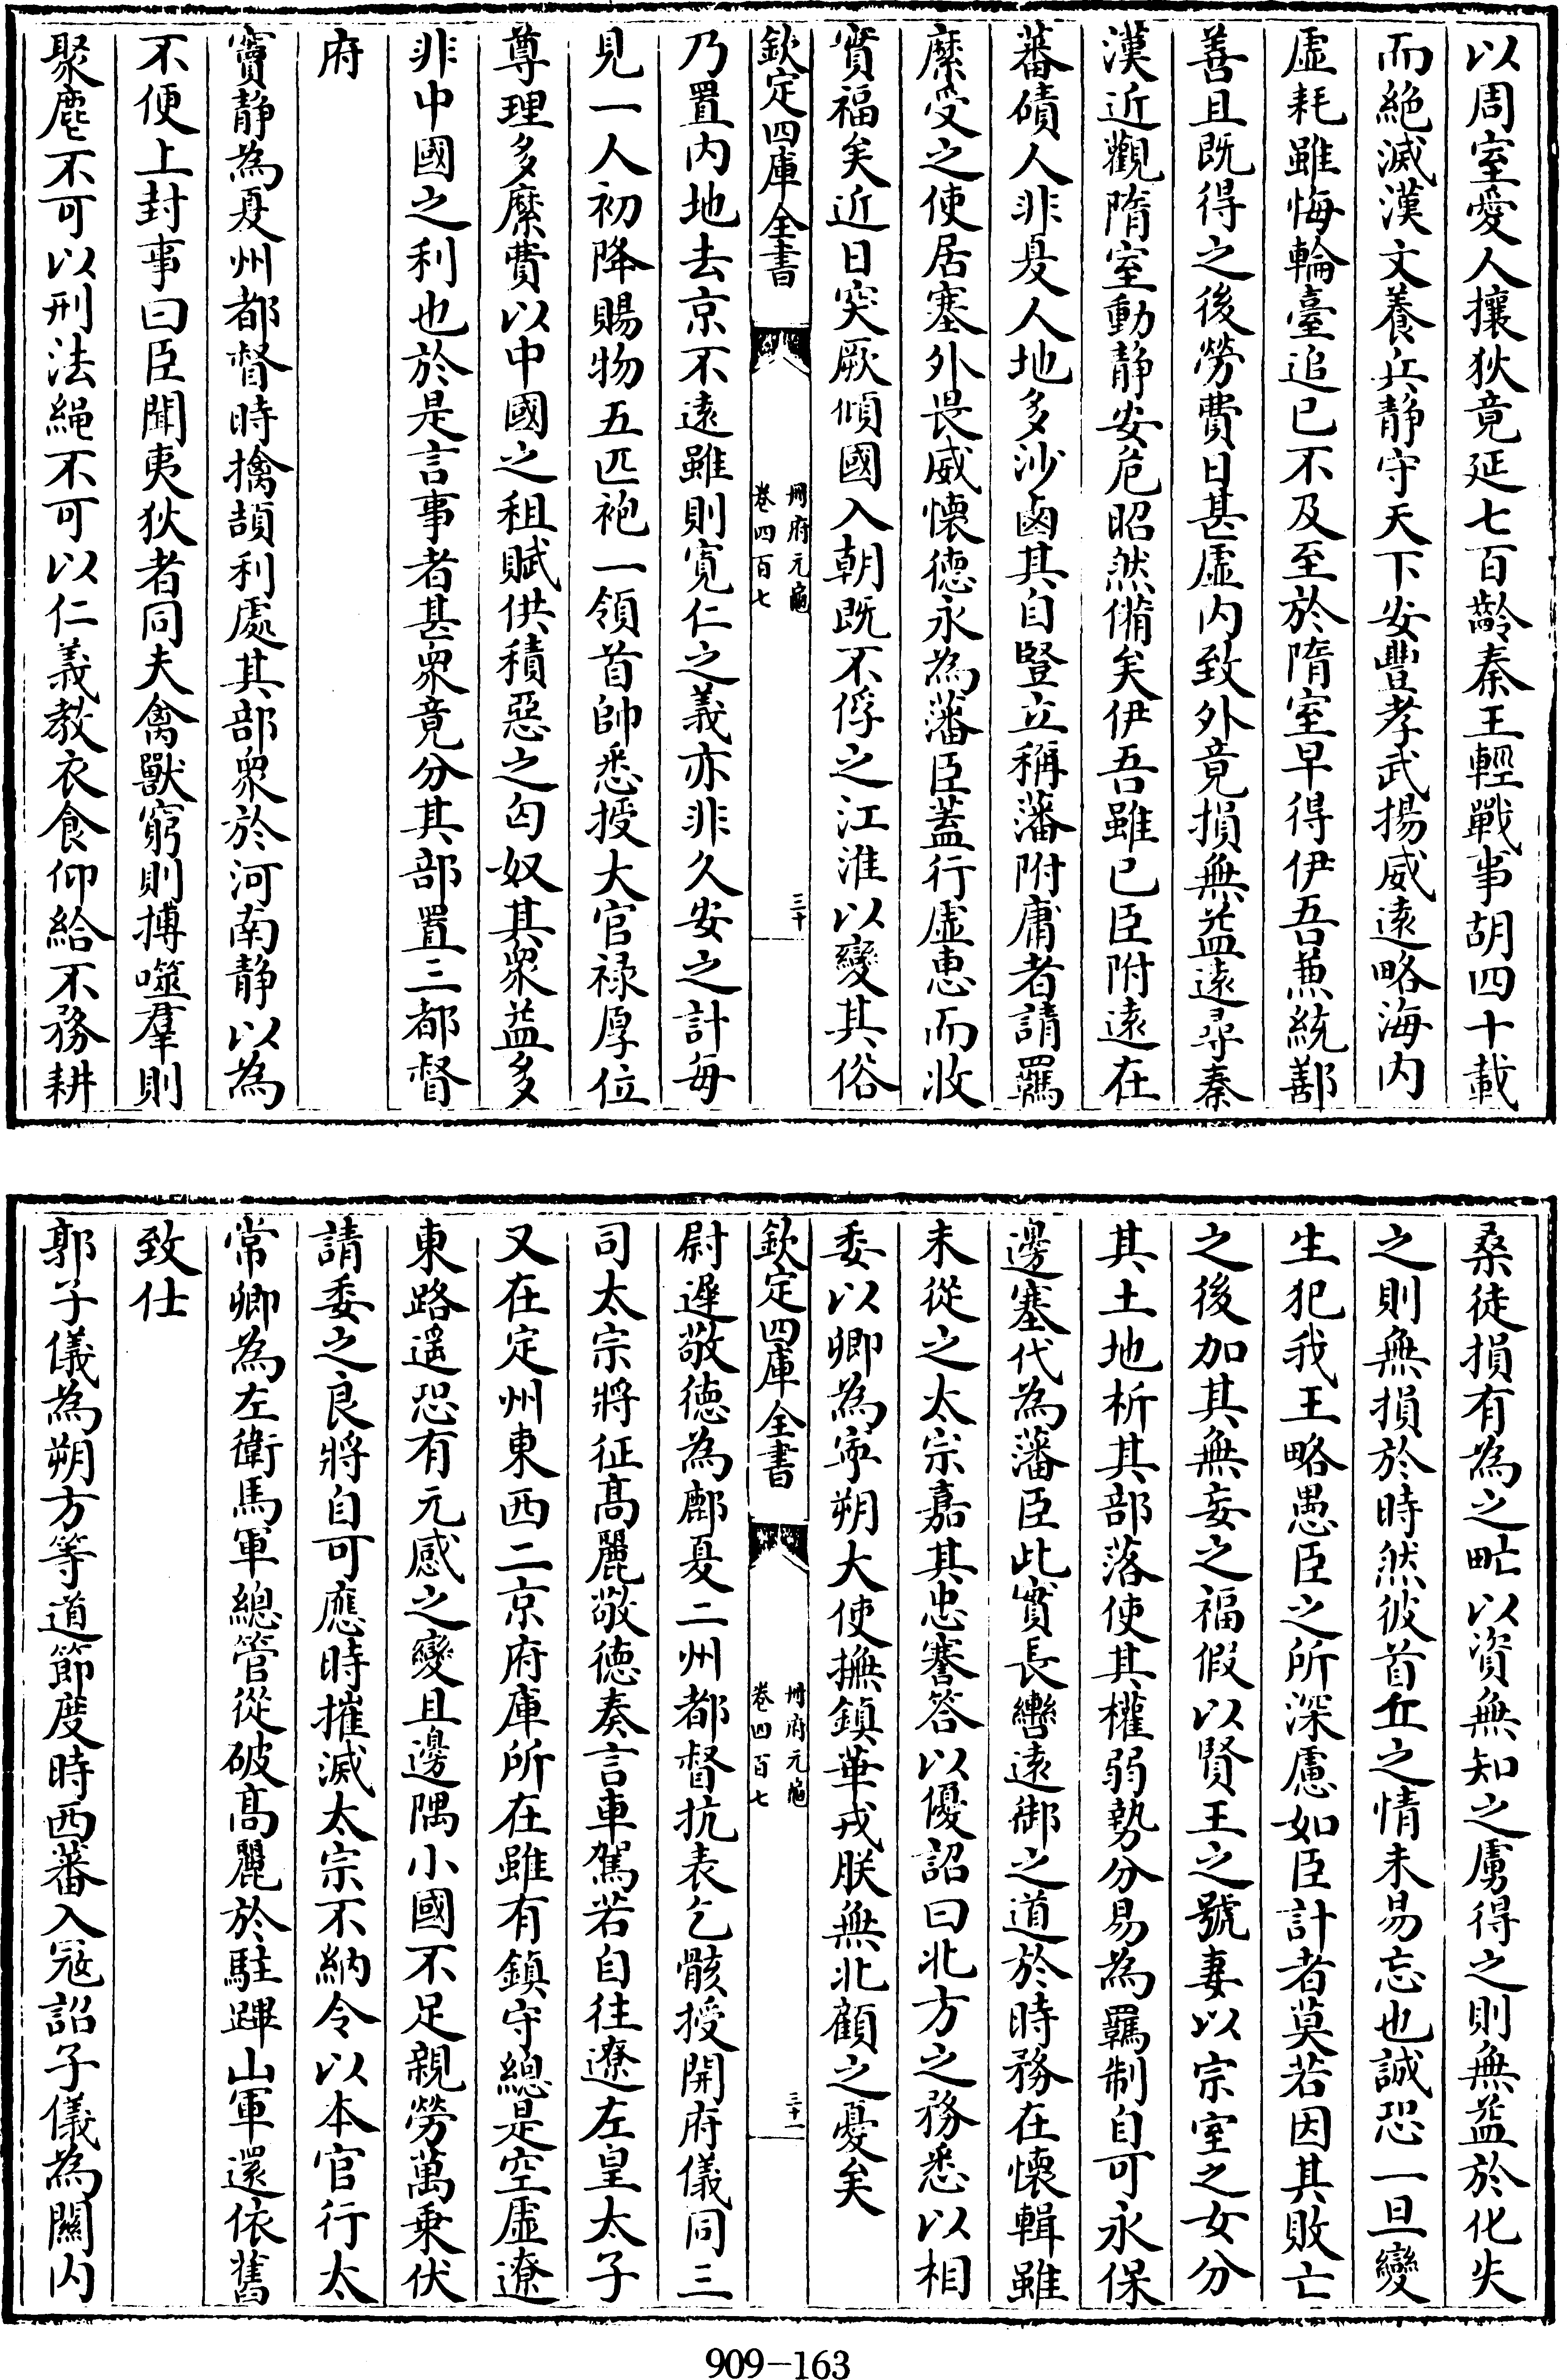 以周室愛人攘狄竟延七百齡秦王輕戰事胡四十載
而絶滅漢文養兵静守天下安豐孝武揚威遠略海内
虛耗雖悔輪臺追已不及至於隋室早得伊吾兼統鄯
善且既得之後勞費日甚虛内致外竟損無益遠尋秦
漢近觀隋室動静安危昭然備矣伊吾雖已臣附遠在
蕃磧人非夏人地多沙鹵其自豎立稱藩附庸者請羈
縻受之使居塞外畏威懷徳永為藩臣蓋行虛恵而收
實福矣近日突厥傾國入朝既不俘之江淮以變其俗
欽定四庫全書
冊府元龜
卷四百七
三十
乃置内地去京不遠雖則寛仁之義亦非久安之計每
見一人初降賜物五匹袍一領首帥悉授大官禄厚位
尊理多縻費以中國之租賦供積惡之匈奴其衆益多
非中國之利也於是言事者甚衆竟分其部置三都督
府
竇静為夏州都督時擒頡利處其部衆於河南静以為
不便上封事曰臣聞夷狄者同夫禽獸窮則搏噬羣則
聚麀不可以刑法繩不可以仁義教衣食仰給不務耕
桑徒損有為之甿以資無知之虜得之則無益於化失
之則無損於時然彼首丘之情未易忘也誠恐一旦變
生犯我王略愚臣之所深慮如臣計者莫若因其敗亡
之後加其無妄之福假以賢王之號妻以宗室之女分
其土地析其部落使其權弱勢分易為羈制自可永保
邊塞代為藩臣此實長轡遠御之道於時務在懷輯雖
未從之太宗嘉其忠謇答以優詔曰北方之務悉以相
委以卿為寧朔大使撫鎮華戎朕無北顧之憂矣
欽定四庫全書
冊府元龜
卷四百七
三十一
尉遲敬徳為鄜夏二州都督抗表乞骸授開府儀同三
司太宗將征髙麗敬徳奏言車駕若自往遼左皇太子
又在定州東西二京府庫所在雖有鎮守總是空虛遼
東路遥恐有元感之變且邊隅小國不足親勞萬乗伏
請委之良將自可應時摧滅太宗不納令以本官行太
常卿為左衛馬軍總管從破髙麗於駐蹕山軍還依舊
致仕
郭子儀為朔方等道節度時西蕃入冦詔子儀為關内
909-163